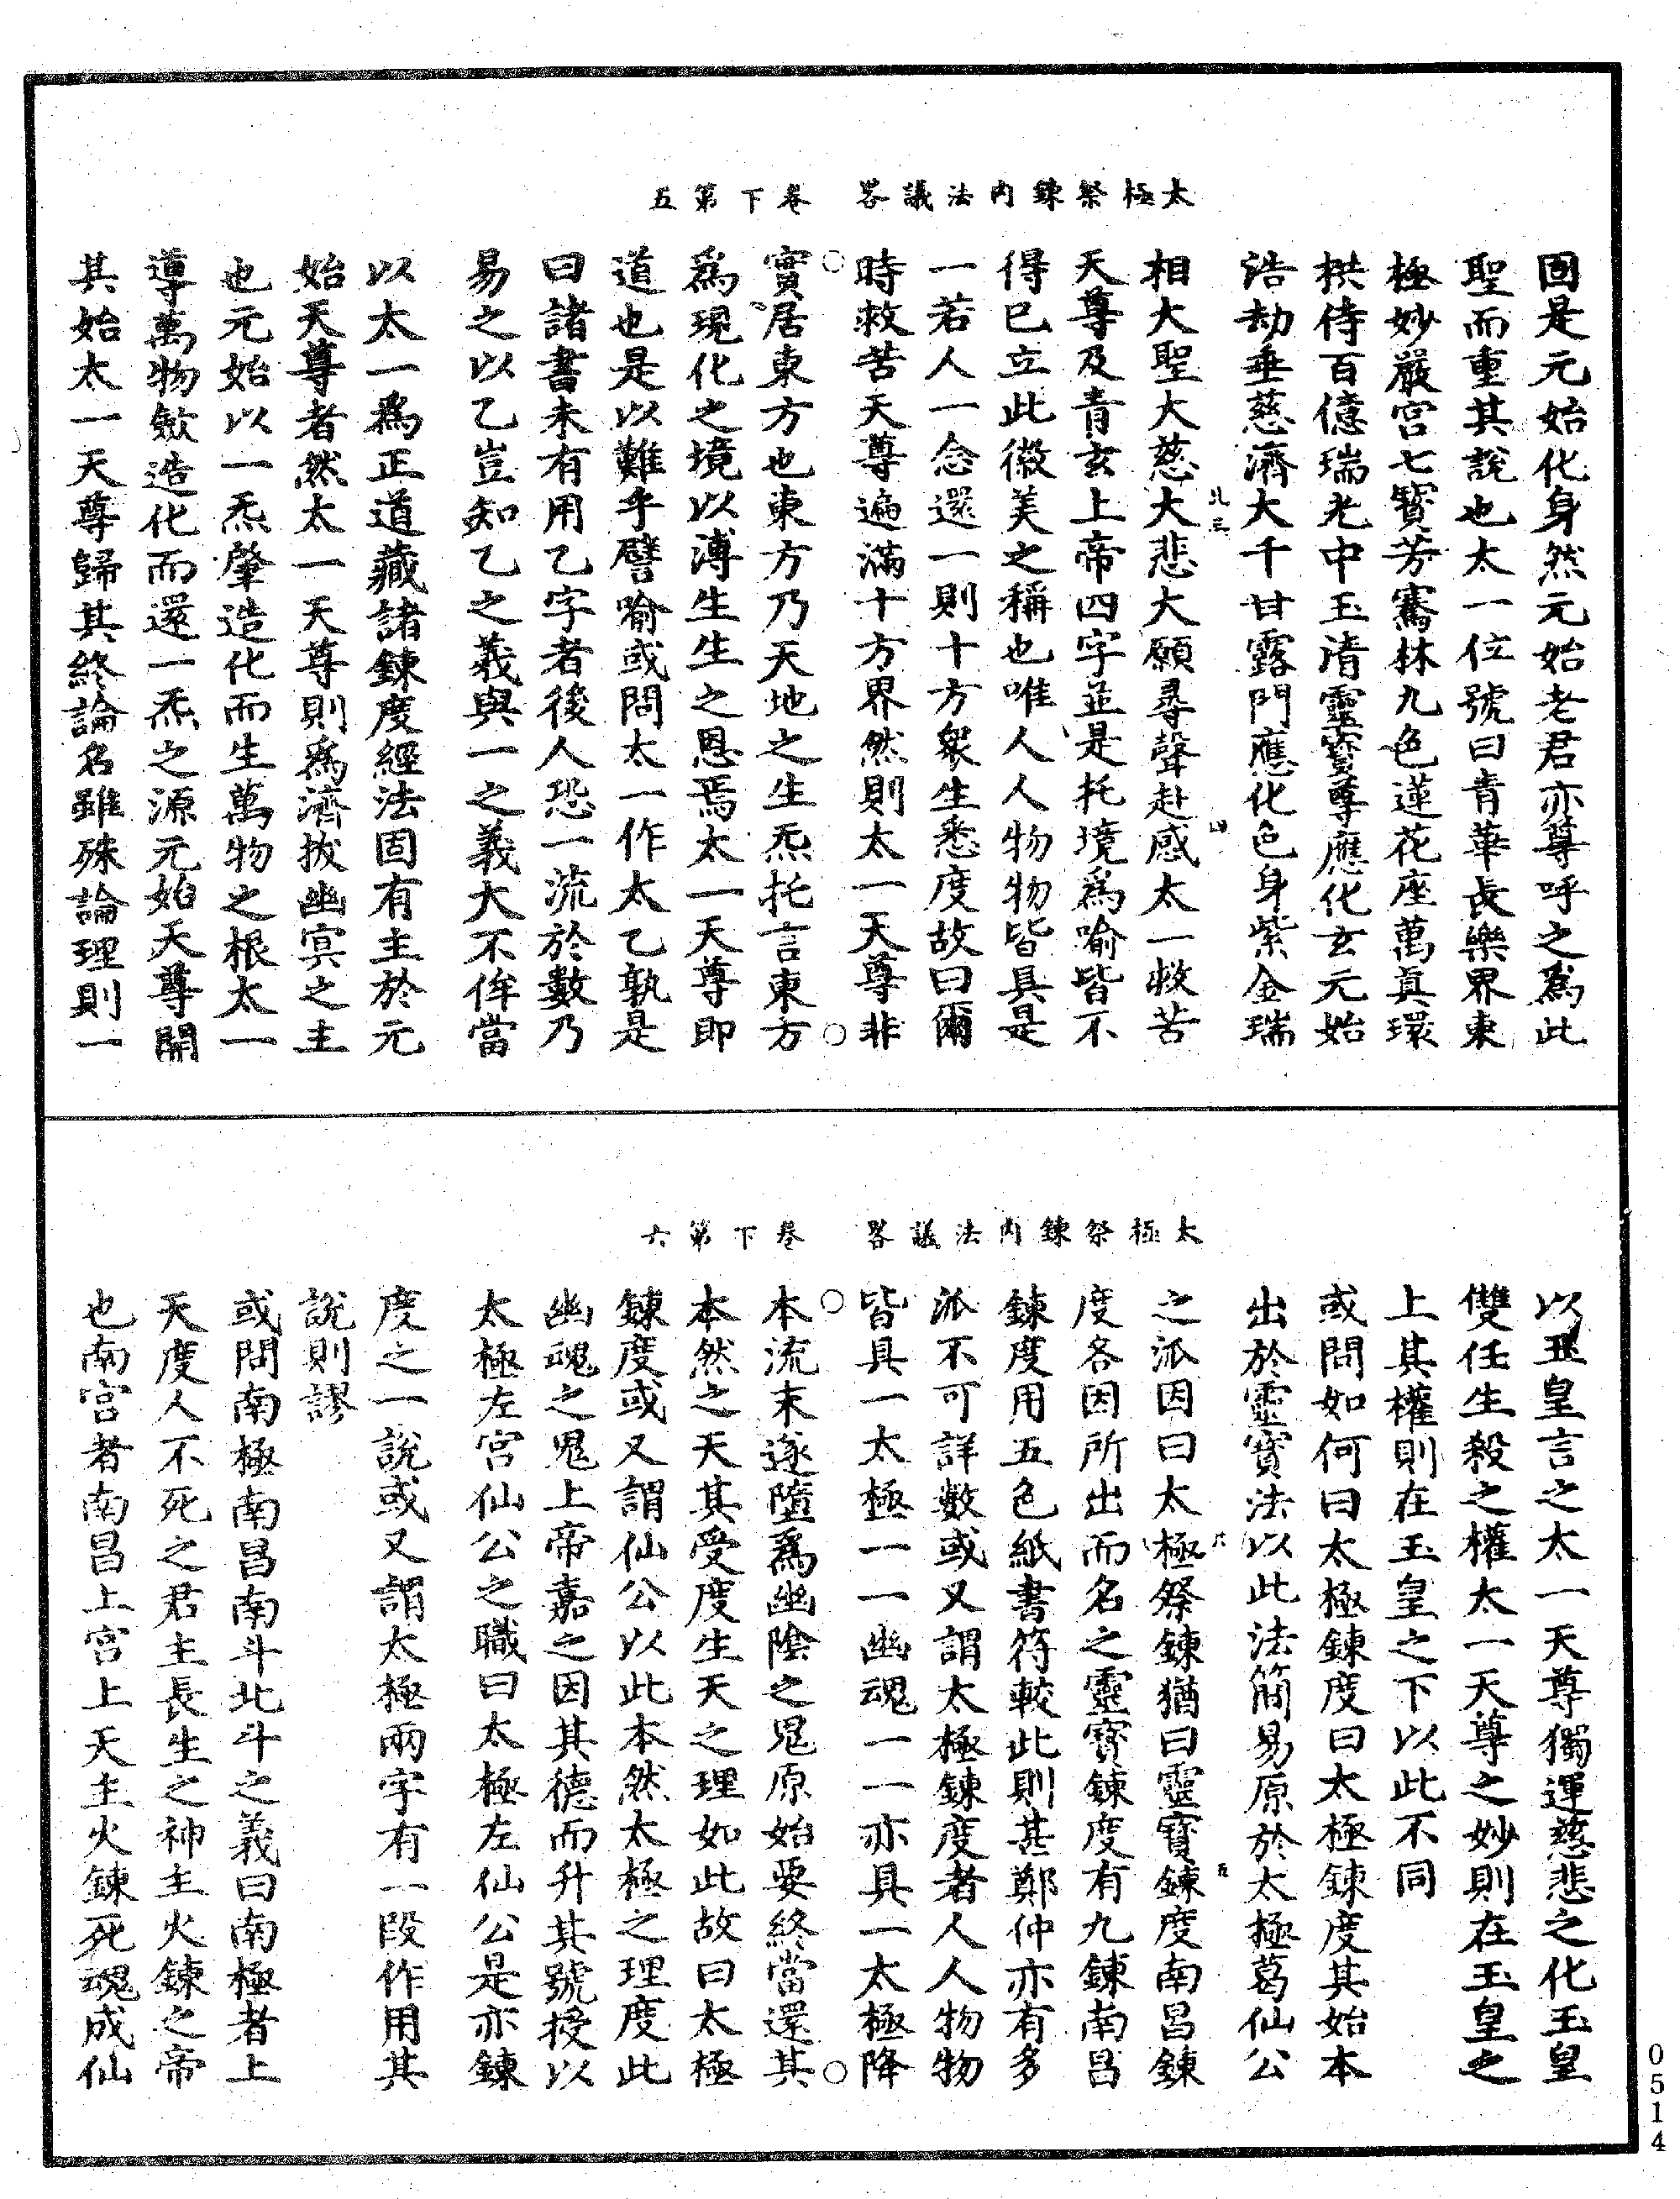 太極祭鍊內法議畧　卷下第五
固是元始化身然元始老君亦尊呼之爲此
聖而重其說也太一位號曰青華長樂界東
極妙嚴宮七寳芳騫林九色蓮花座萬真環
拱侍百億瑞光中玉清靈寳尊應化玄元始
浩劫垂慈濟大千甘露門應化色身紫金瑞
相大聖大慈大悲大願尋聲赴感太一救苦
天尊及青玄上帝四字並是托境爲喻皆不
得已立此徽美之稱也唯人人物物皆具是
一若人一念還一則十方衆生悉度故曰爾
時救苦天尊遍滿十方界然則太一天尊非
實居東方也東方乃天地之生炁托言東方
爲現化之境以溥生生之恩焉太一天尊即
道也是以難乎譬喻或問太一作太乙孰是
曰諸書未有用乙字者後人恐一流於數乃
易之以乙豈知乙之義與一之義大不侔當
以太一爲正道藏諸鍊度經法固有主於元
始天尊者然太一天尊則爲濟拔幽冥之主
也元始以一炁肇造化而生萬物之根太一
導萬物斂造化而還一炁之源元始天尊開
其始太一天尊歸其終論名雖殊論理則一
太極祭鍊內法議畧　卷下第六
以玉皇言之太一天尊獨運慈悲之化玉皇
雙任生殺之權太一天尊之妙則在玉皇之
上其權則在玉皇之下以此不同
或問如何曰太極鍊度曰太極鍊度其始本
出於靈寳法以此法簡易原於太極葛仙公
之派因曰太極祭鍊猶曰靈寳鍊度南昌鍊
度各因所出而名之靈寳鍊度有九鍊南昌
鍊度用五色紙書符較此則甚鄭仲亦有多
派不可詳數或又謂太極鍊度者人人物物
皆具一太極一一幽魂一一亦具一太極降
本流末遂墮爲幽陰之鬼原始要終當還其
本然之天其受度生天之理如此故曰太極
鍊度或又謂仙公以此本然太極之理度此
幽魂之鬼上帝嘉之因其德而升其號授以
太極左宮仙公之職曰太極左仙公是亦鍊
度之一說或又謂太極兩字有一段作用其
說則謬
或問南極南昌南斗北斗之義曰南極者上
天度人不死之君主長生之神主火鍊之帝
也南宮者南昌上宮上天主火鍊死魂成仙
0514